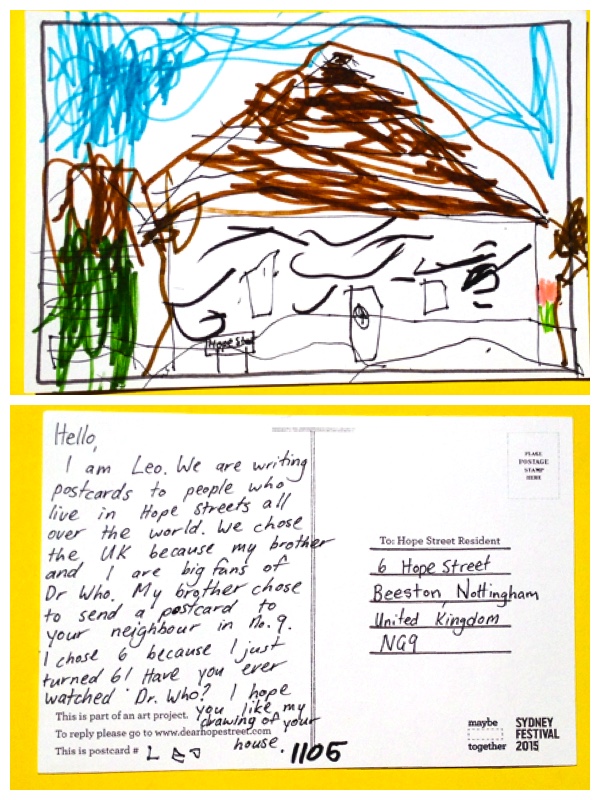 Hope Stree
Hello,
I am Leo. We are writing
postcards to people who
live in Hope streets all
over the world. We chose
the UK because my brother
and I are big fans of
Dr Who. My brother chose
to send a postcard to
your neighbour in no. 9.
I chose 6 because I just
turned 6! Have you ever
watched Dr. Who? I hope
you like my
drawing of your
house.
This is part of an art project.
To reply please go to www.dearhopestreet.com
This is postcard # 1105
LEO
PLACE
POSTAGE
STAMP
HERE
To: Hope Street Resident
6 Hope Street
Beeston, Nottingham
United Kingdom
NG9
maybe
together
SYDNEY
FESTIVAL
2015